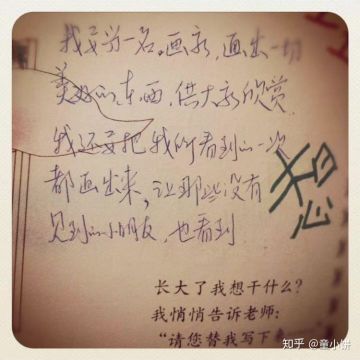 我要当一名画家，画出一切
美好的东西，供大家欣赏
我还要把我所看到的一次
都画出来，让那些没有
见到的小朋友，也看到
长大了我想干什么？
我悄悄告诉老师：
“请您替我写下来
知乎 @童小饼